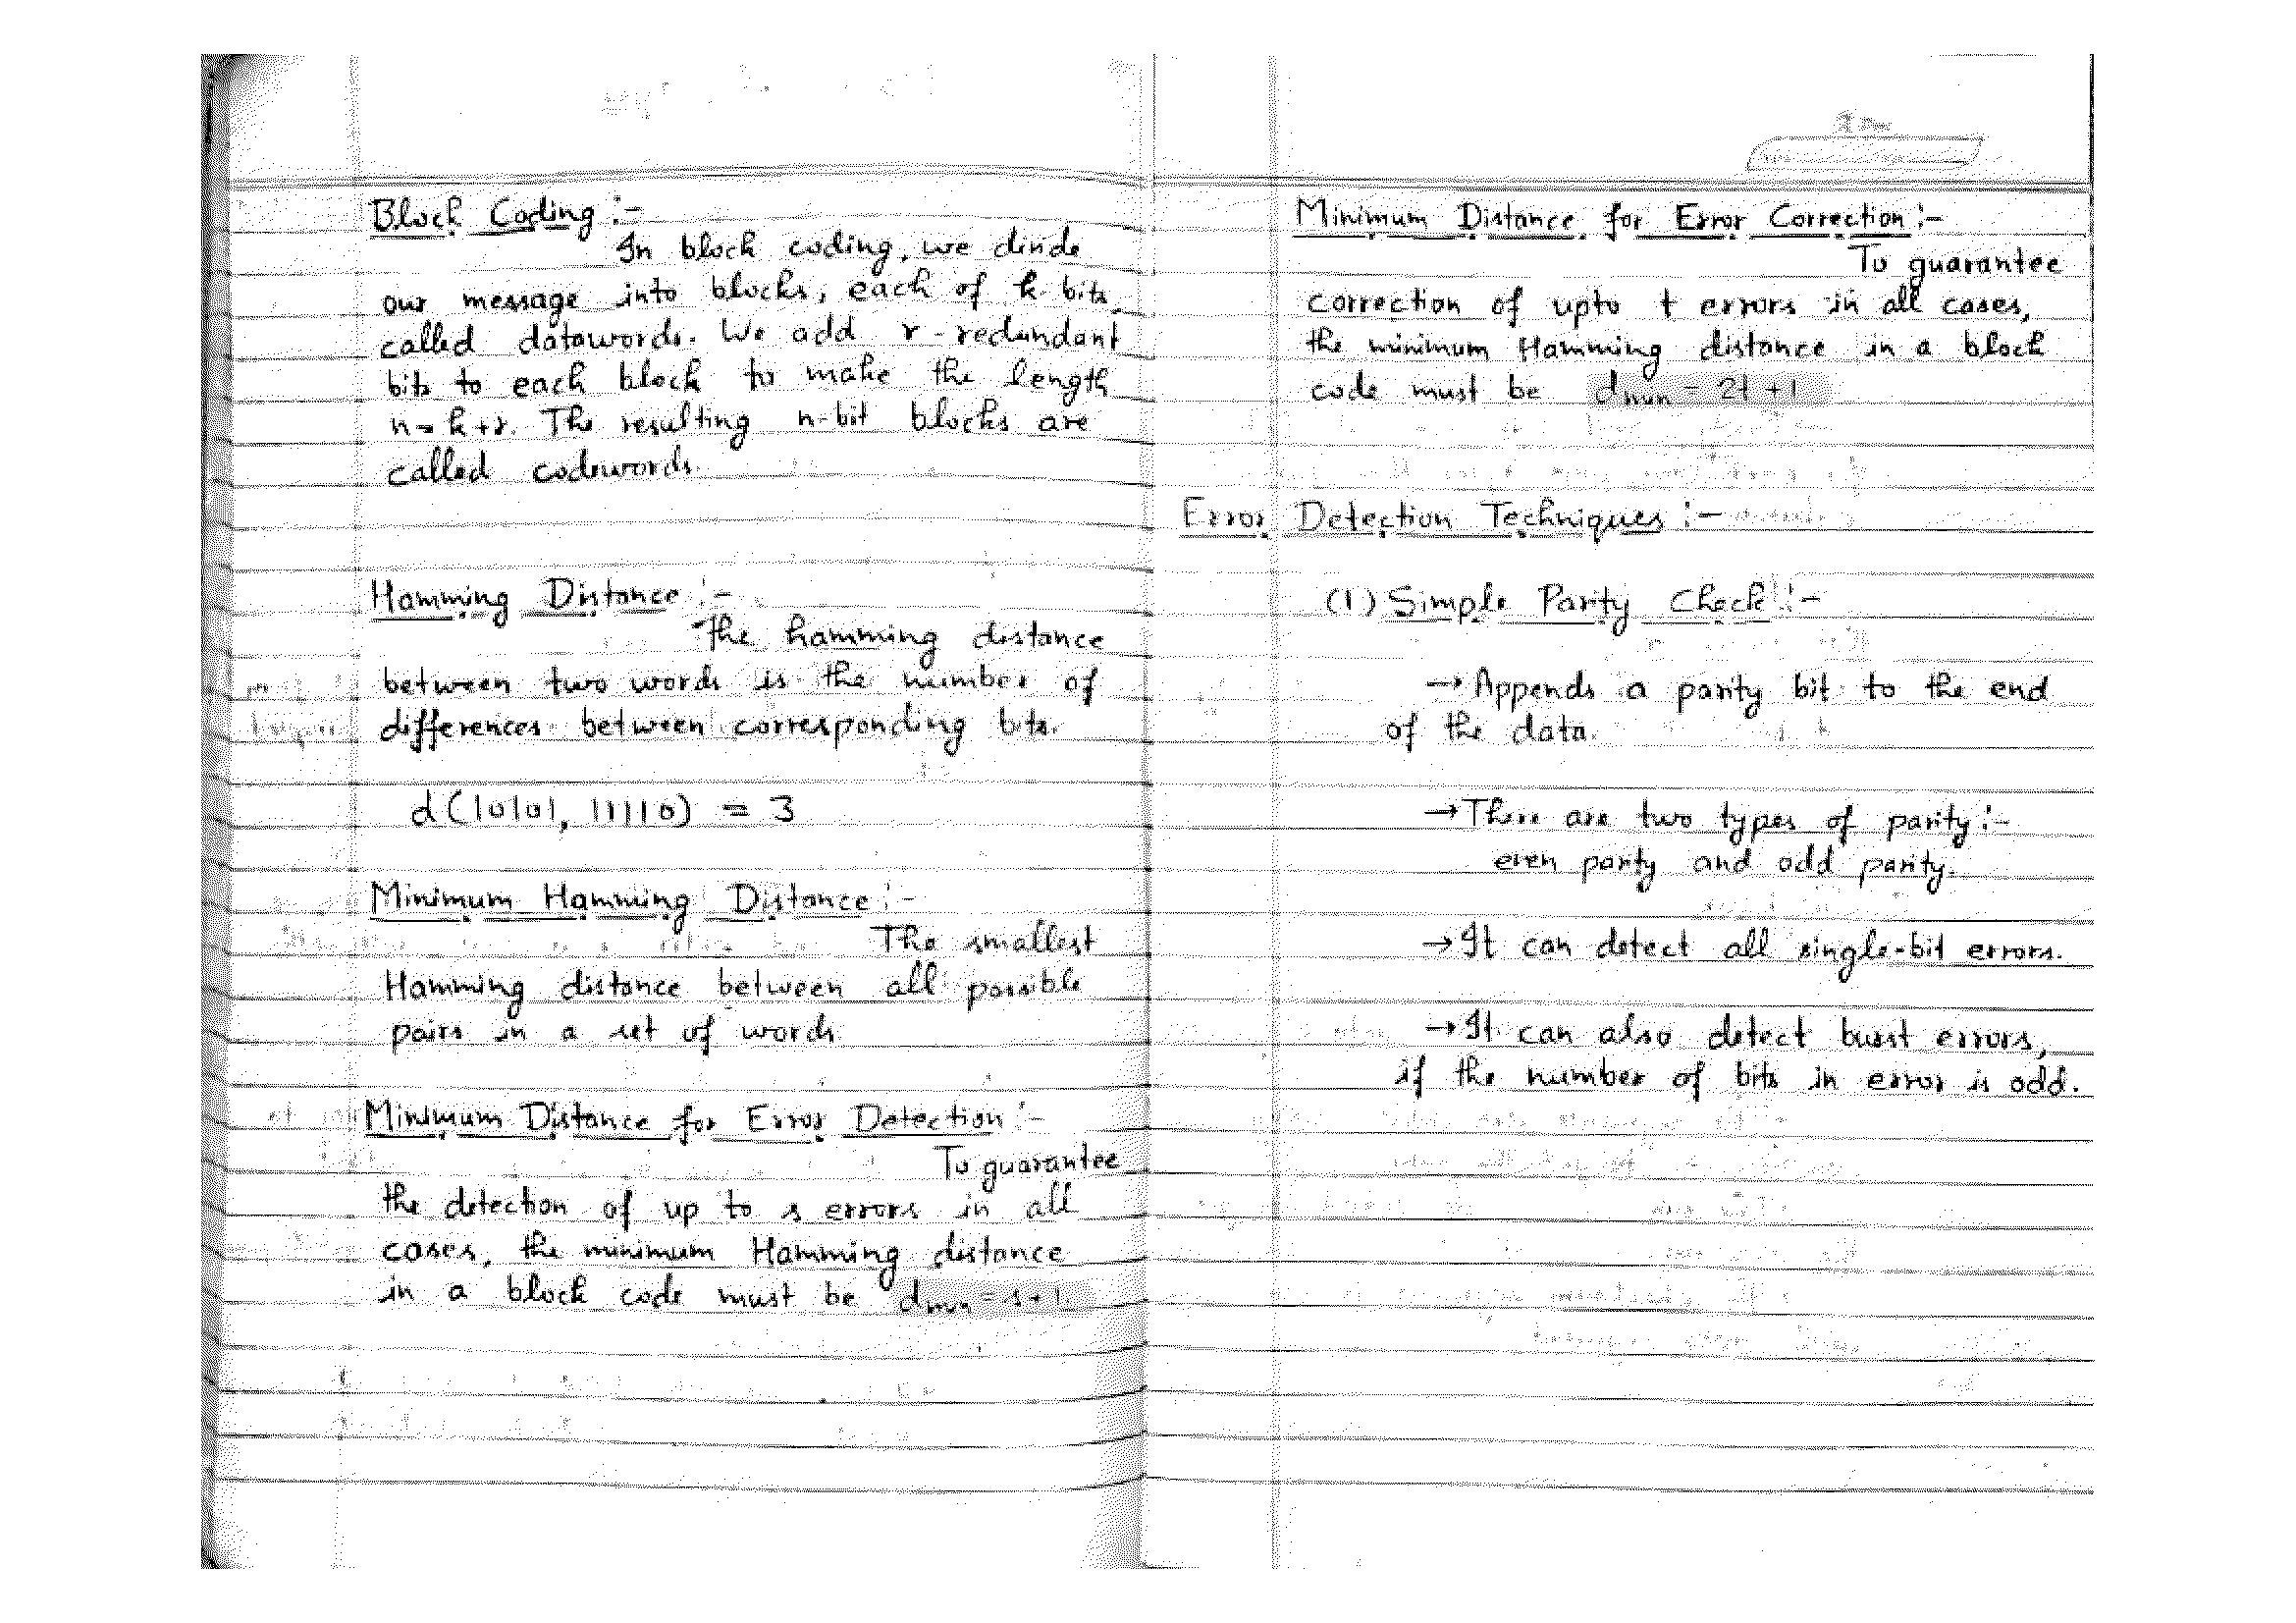 Block Coding :-
In block coding, we divide
our message into blocks, each of k bits,
called datawords. We add r-redundant
bits to each block to make the length
n = k+r. The resulting n-bit blocks are
called codewords.
Hamming Distance :-
The hamming distance
between two words is the number of
differences between corresponding bits.
d(10101, 11110) = 3
Minimum Hamming Distance :-
The smallest
Hamming distance between all possible
pairs in a set of words.
Minimum Distance for Error Detection :-
To guarantee
the detection of up to s errors in all
cases, the minimum Hamming distance
in a block code must be dmin = s+1
Minimum Distance for Error Correction :-
To guarantee
correction of upto t errors in all cases,
the minimum Hamming distance in a block
code must be dmin = 2t +1
Error Detection Techniques :-
(1) Simple Parity Check :-
→ Appends a parity bit to the end
of the data.
→ There are two types of parity :-
even parity and odd parity.
→ It can detect all single-bit errors.
→ It can also detect burst errors,
if the number of bits in error is odd.